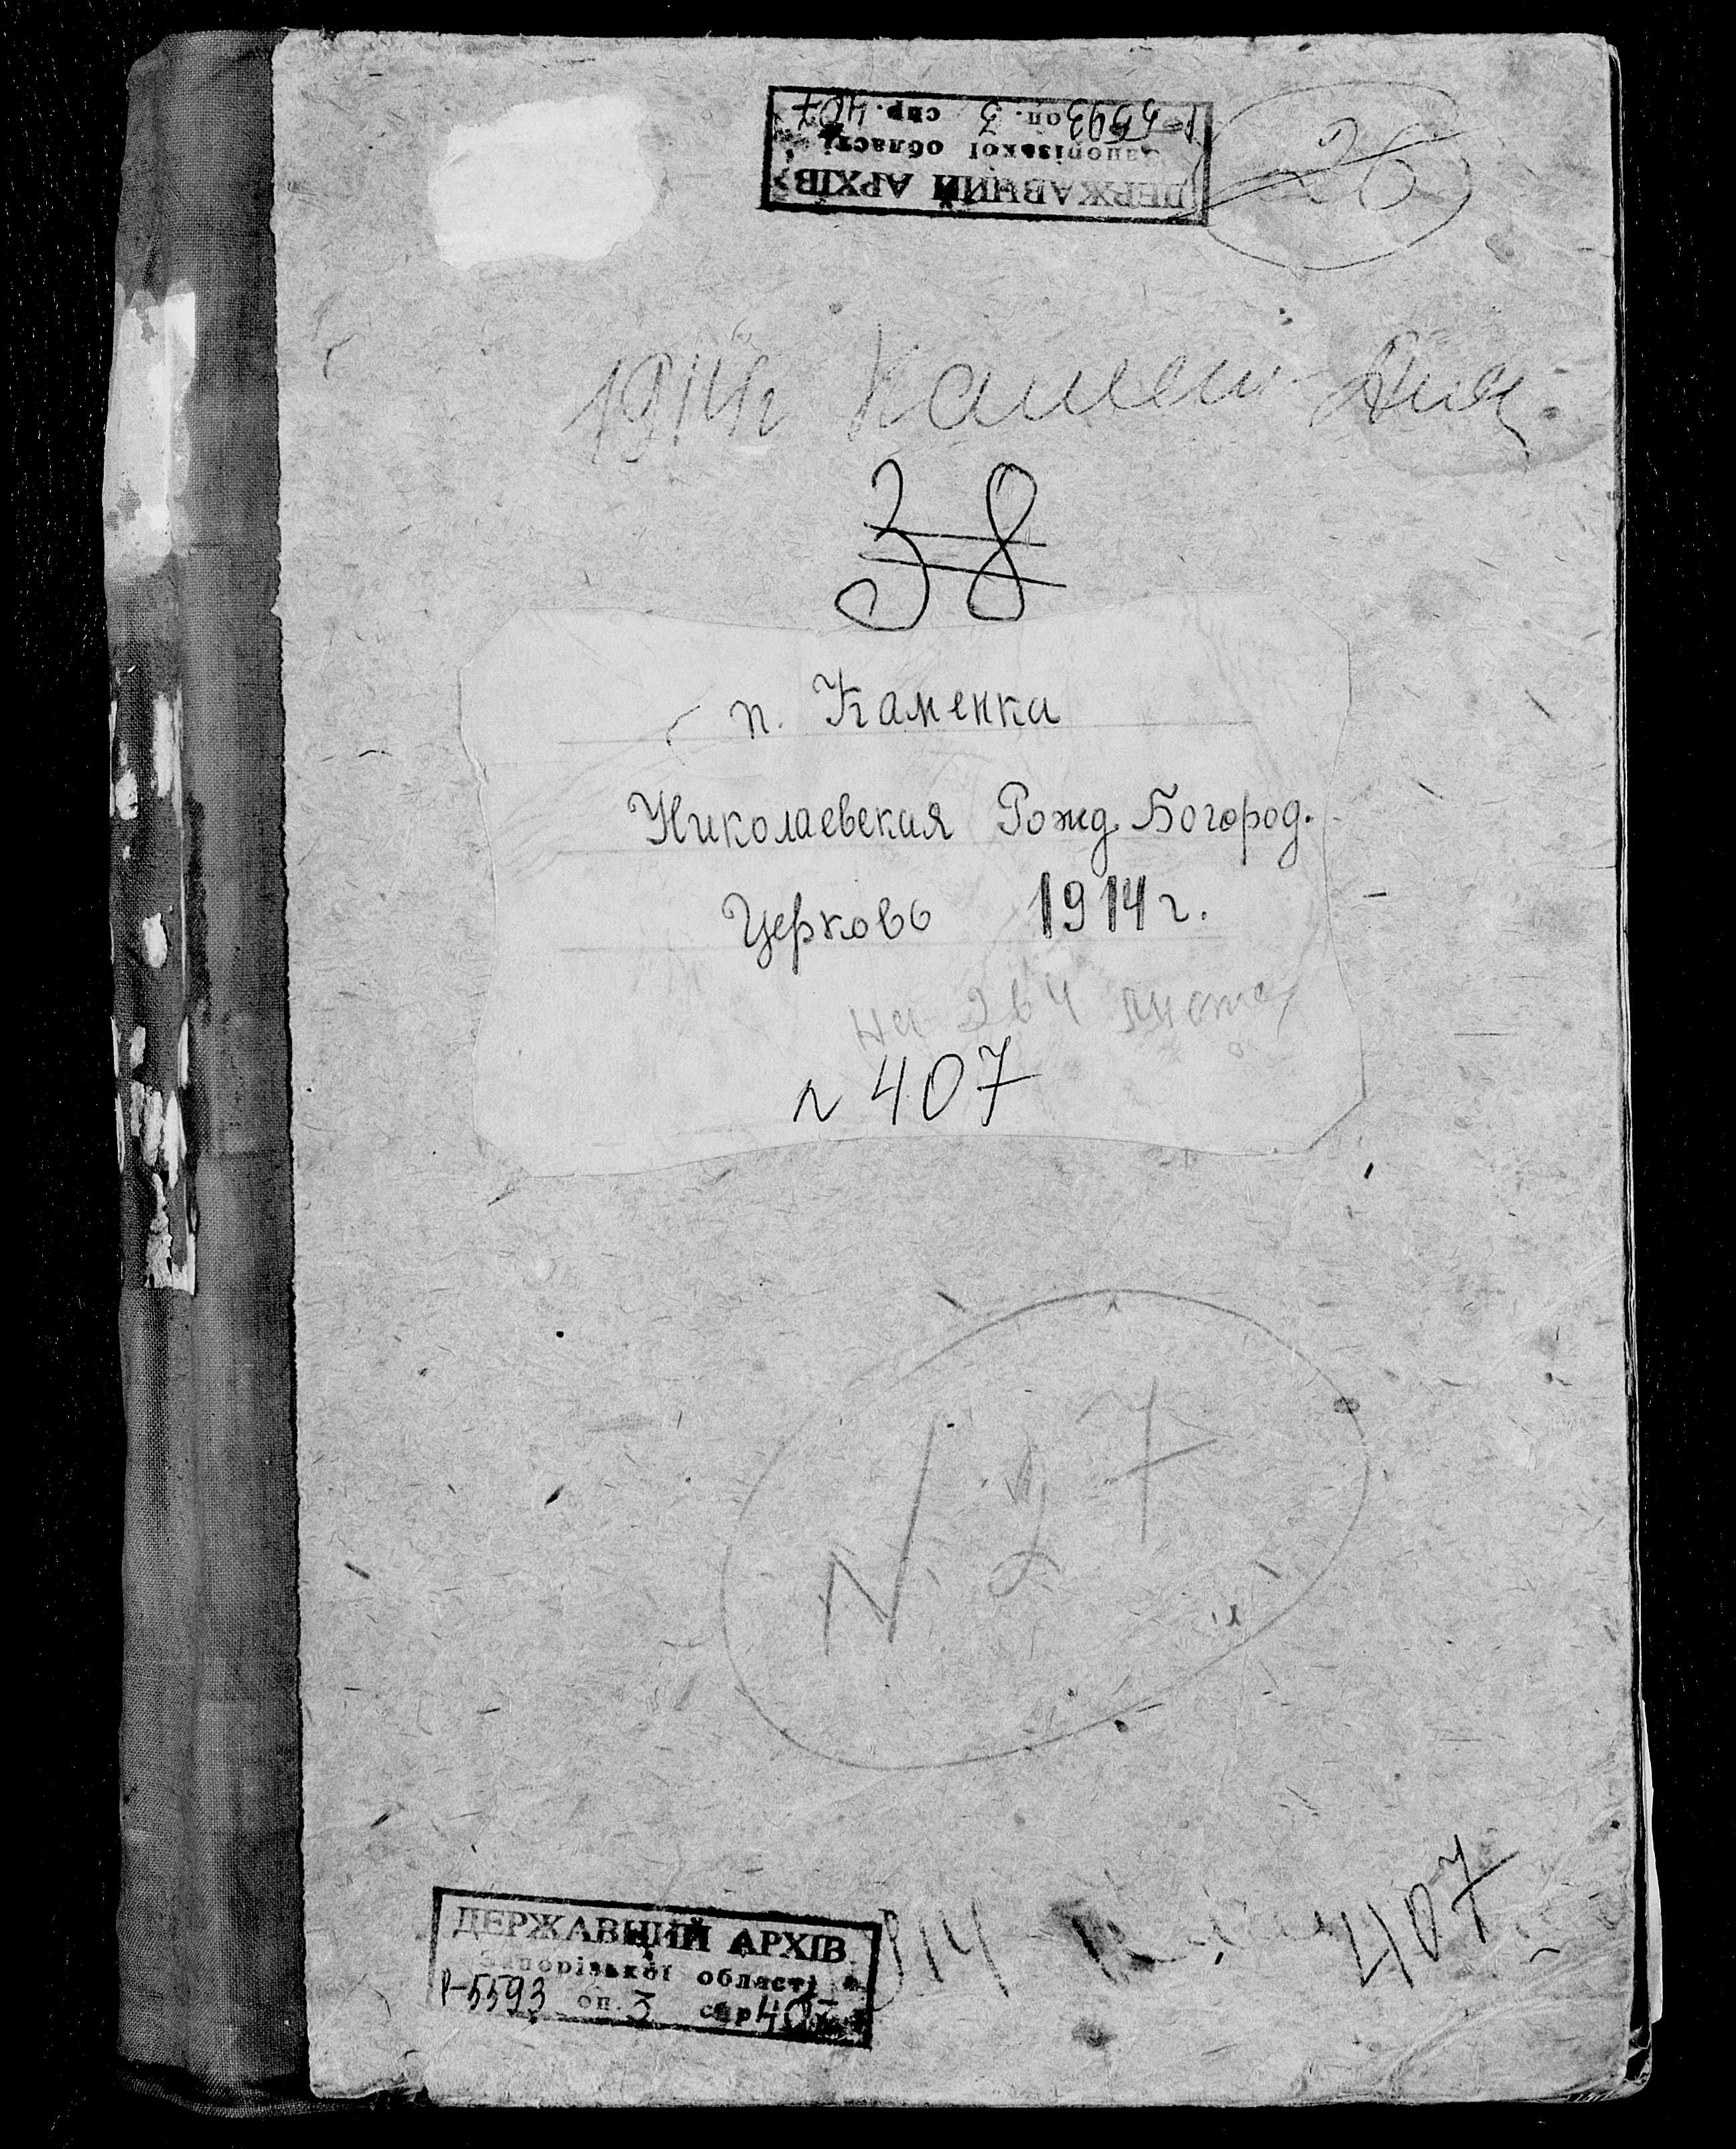 ДЕРЖАВНИЙ АРХІВ
Запорізької області
Р-5593 оп. 3 спр. 407
26
1914г Камен
38
п. Каменка
Николаевская Рожд. Богород.
Церковь 1914 г.
на 264 листах
№ 407
N 27
407
ДЕРЖАВНИЙ АРХІВ
Запорізької області
Р-5593 оп. 3 спр 407